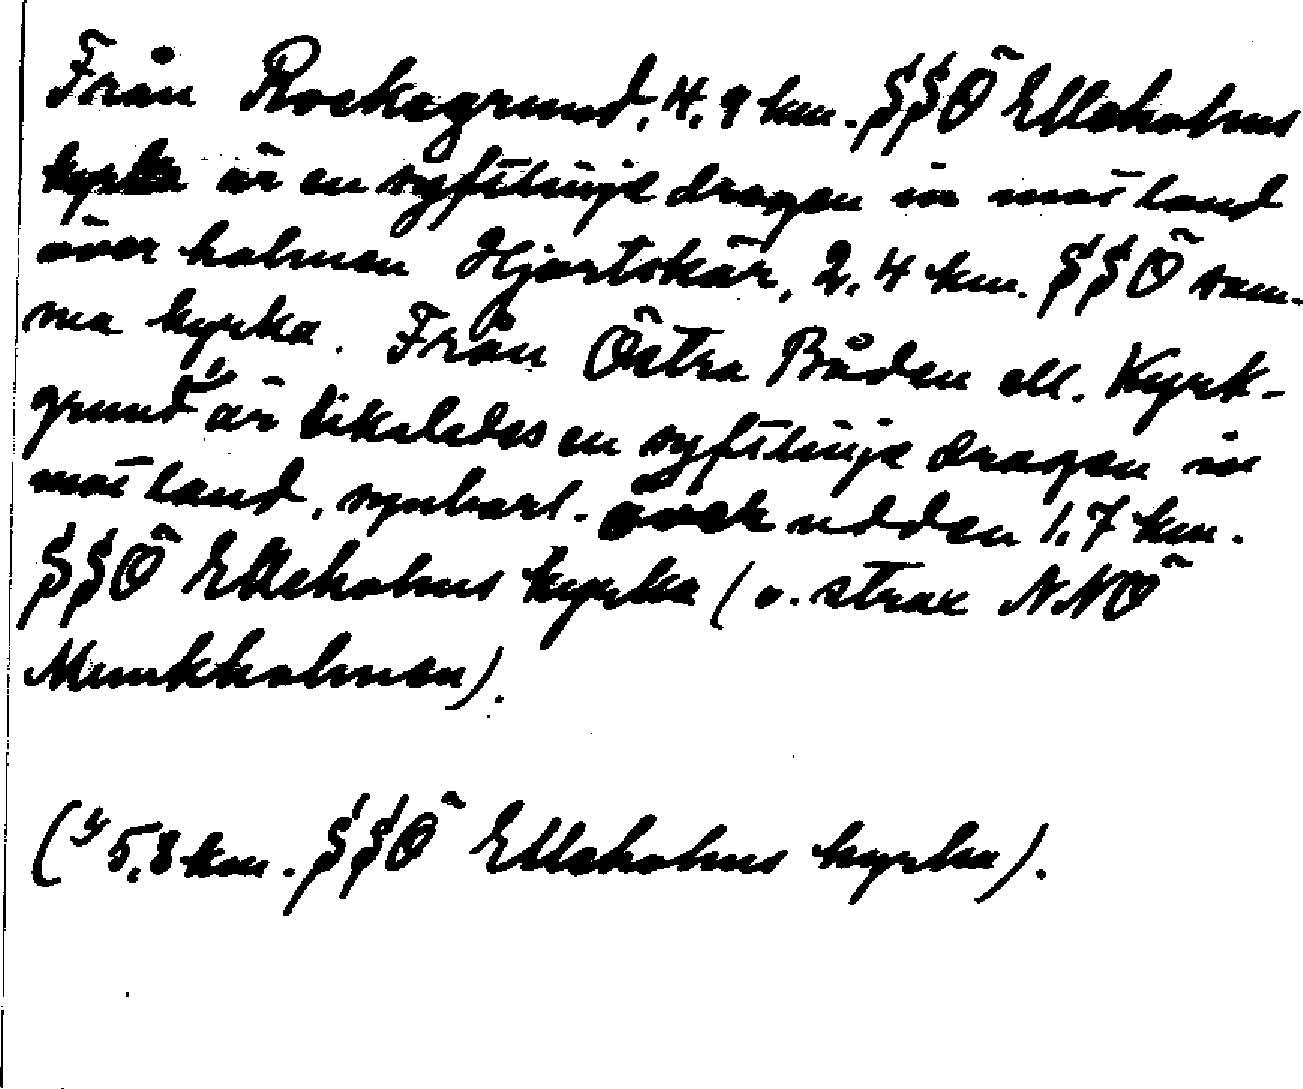 Från Rocksgrund, 4,9 km. SSÖ Elleholms
kyrka är en syftlinje dragen in mot land
över holmen Hjortskär, 2,4 km. SSÖ sam-
ma kyrka. Från Östra Båden ell. Kyrk-
grund ¹⁾ är likaledes en syftlinje dragen in
mot land, synbarl. över udden 1,7 km.
SSÖ Elleholms kyrka (o. strax NNÖ
Munkholmen).
(¹⁾ 5,8 km. SSÖ Elleholms kyrka).